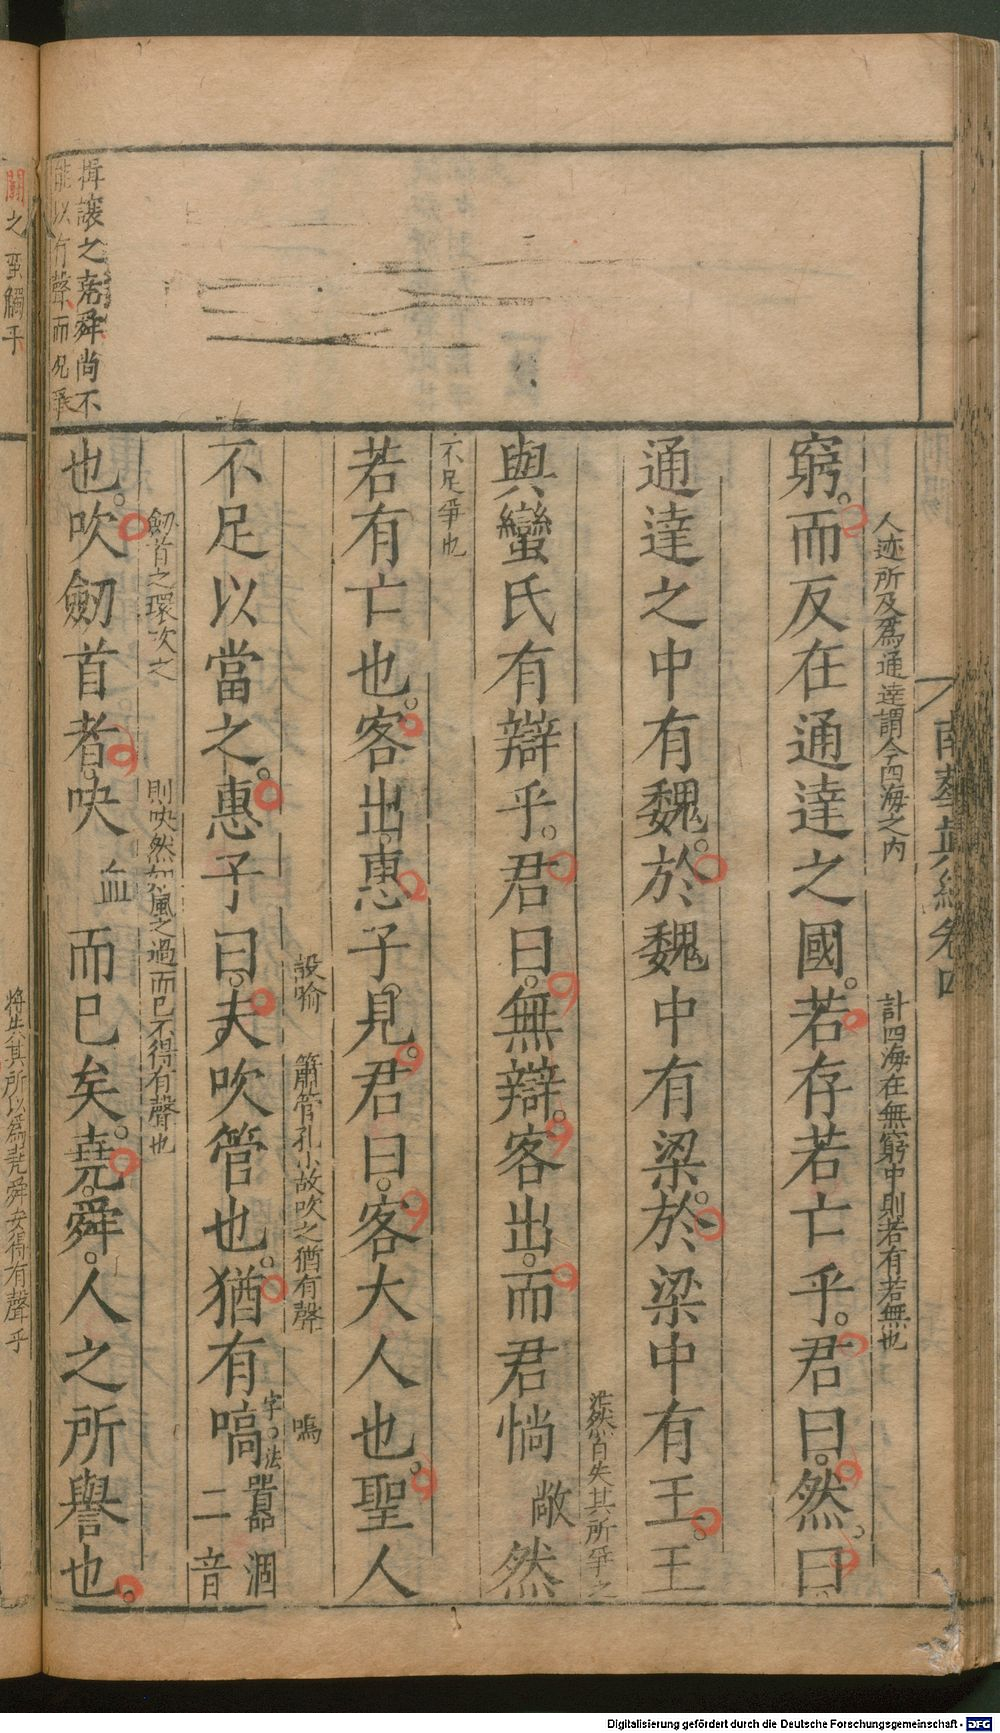 南華真經卷四
人迹所及爲通達謂今四海之内 計四海在無窮中則若有若無也
窮。而反在通達之國。若存若亡乎。君曰。然。曰
通達之中有魏。於魏中有梁。於梁中有王。王
茫然自失其所爭之
與蠻氏有辯乎。君曰。無辯。客出。而君惝敞然
不足爭也
若有亡也。客出。惠子見。君曰。客大人也。聖人
設喻 簫管孔小故吹之猶有聲 鳴
不足以當之。惠子曰。夫吹管也。猶有嗃字。法嚣涸二音
劒首之環吹之 則吷然如風之過而已不得有聲也
也。吹劒首者。吷血而已矣。堯。舜。人之所譽也。
揖讓之旁舜尚不
能以有聲而况爭
將失其所以爲堯舜安得有聲乎
鬬之蛮觸乎
Digitalisierung gefördert durch die Deutsche Forschungsgemeinschaft - DFG